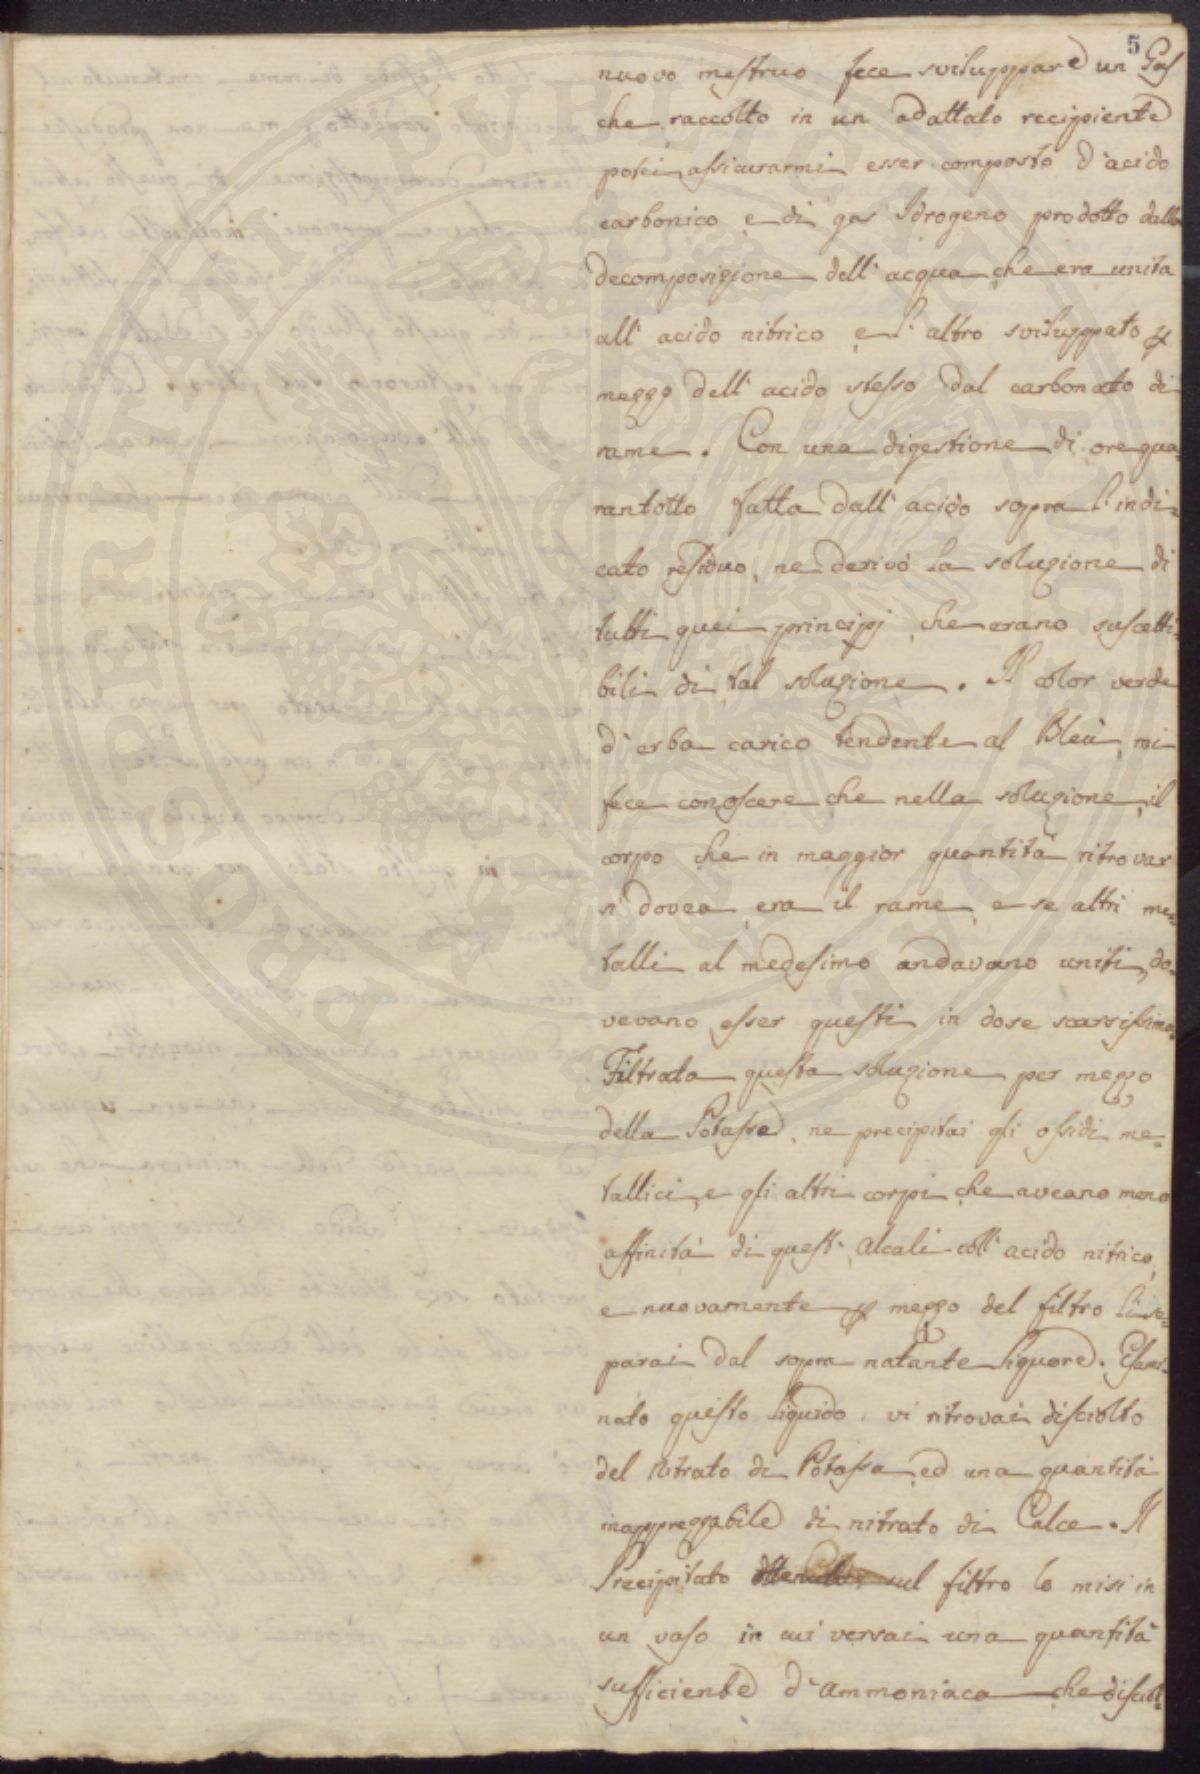 5
nuovo mestruo fece sviluppare un Gas
che raccolto in un adattato recipiente
potei assicurarmi esser composto d'acido
carbonico e di gas Idrogeno prodotto dalla
decomposizione dell'acqua che era unita
all'acido nitrico e l'altro sviluppato p
mezzo dell'acido stesso dal carbonato di
rame. Con una digestione di ore qua=
rantotto fatta dall'acido sopra l'indi=
cato residuo, ne derivò la soluzione di
tutti quei principj che erano suscetti=
bili di tal soluzione. Il color verde
d'erba carico tendente al Bleù, mi
fece conoscere che nella soluzione, il
corpo che in maggior quantità ritrovar
si dovea era il rame, e se altri me=
talli al medesimo andavano uniti, do=
vevano esser questi in dose scarsissima.
Filtrata questa soluzione per mezzo
della Potassa, ne precipitai gli ossidi me=
tallici, e gli altri corpi che aveano meno
affinità di questi Alcali coll'acido nitrico,
e nuovamente p mezzo del filtro li se=
parai dal sopra natante liquore. Esami=
nato questo liquido, vi ritrovai disciolto
del Nitrato di Potassa ed una quantità
inapprezzabile di nitrato di Calce. Il
Precipitato sul filtro lo misi in
un vaso in cui versai una quantità
sufficiente d'ammoniaca che disciol=
PROSPERITATI PUBLICAE AUGENDAE